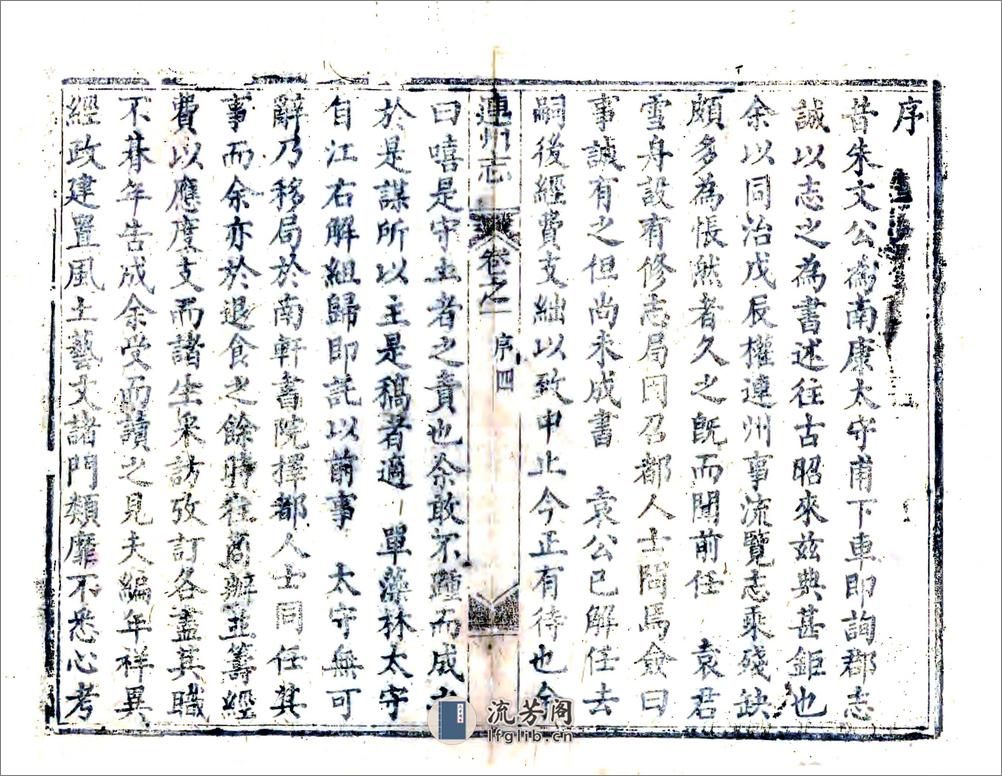 序
昔朱文公為南康太守甫下車即詢郡志
誠以志之為書述往古昭來兹典甚鉅也
余以同治戊辰權連州事流覽志乘殘缺
頗多為悵然者久之旣而聞前任 袁君
雪身設有修志局因召都人士問焉僉曰
事誠有之但尚未成書 袁公已解任去
嗣後經費支絀以致中止今正有待也余
連州志 卷之一 序 四
曰嘻是守土者之責也余敢不踵而成之
於是謀所以主是稿者適 單藻林太守
自江右解組歸即託以前事 太守無可
辭乃移局於南軒書院擇都人士同任其
事而余亦於退食之餘時往商辦並籌經
費以應度支而諸生采訪攷訂各盡其職
不朞年告成余受而讀之見夫編年祥異
經政建置風土藝文諸門類靡不悉心考
流芳阁
lfglib.cn